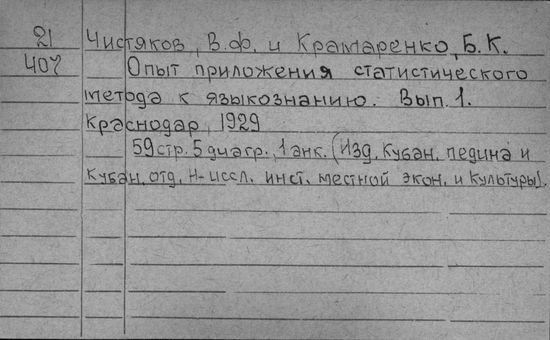 21 Чистяков, В.Ф. и Крамаренко, Б.К.
407 Опыт приложения статистического
метода к языкознанию. Вып. 1.
Краснодар, 1929
59 стр. 5 диагр., 1 анк. (Изд. Кубан. педина и
Кубан. отд. Н-иссл. инст. местной экон. и культуры).